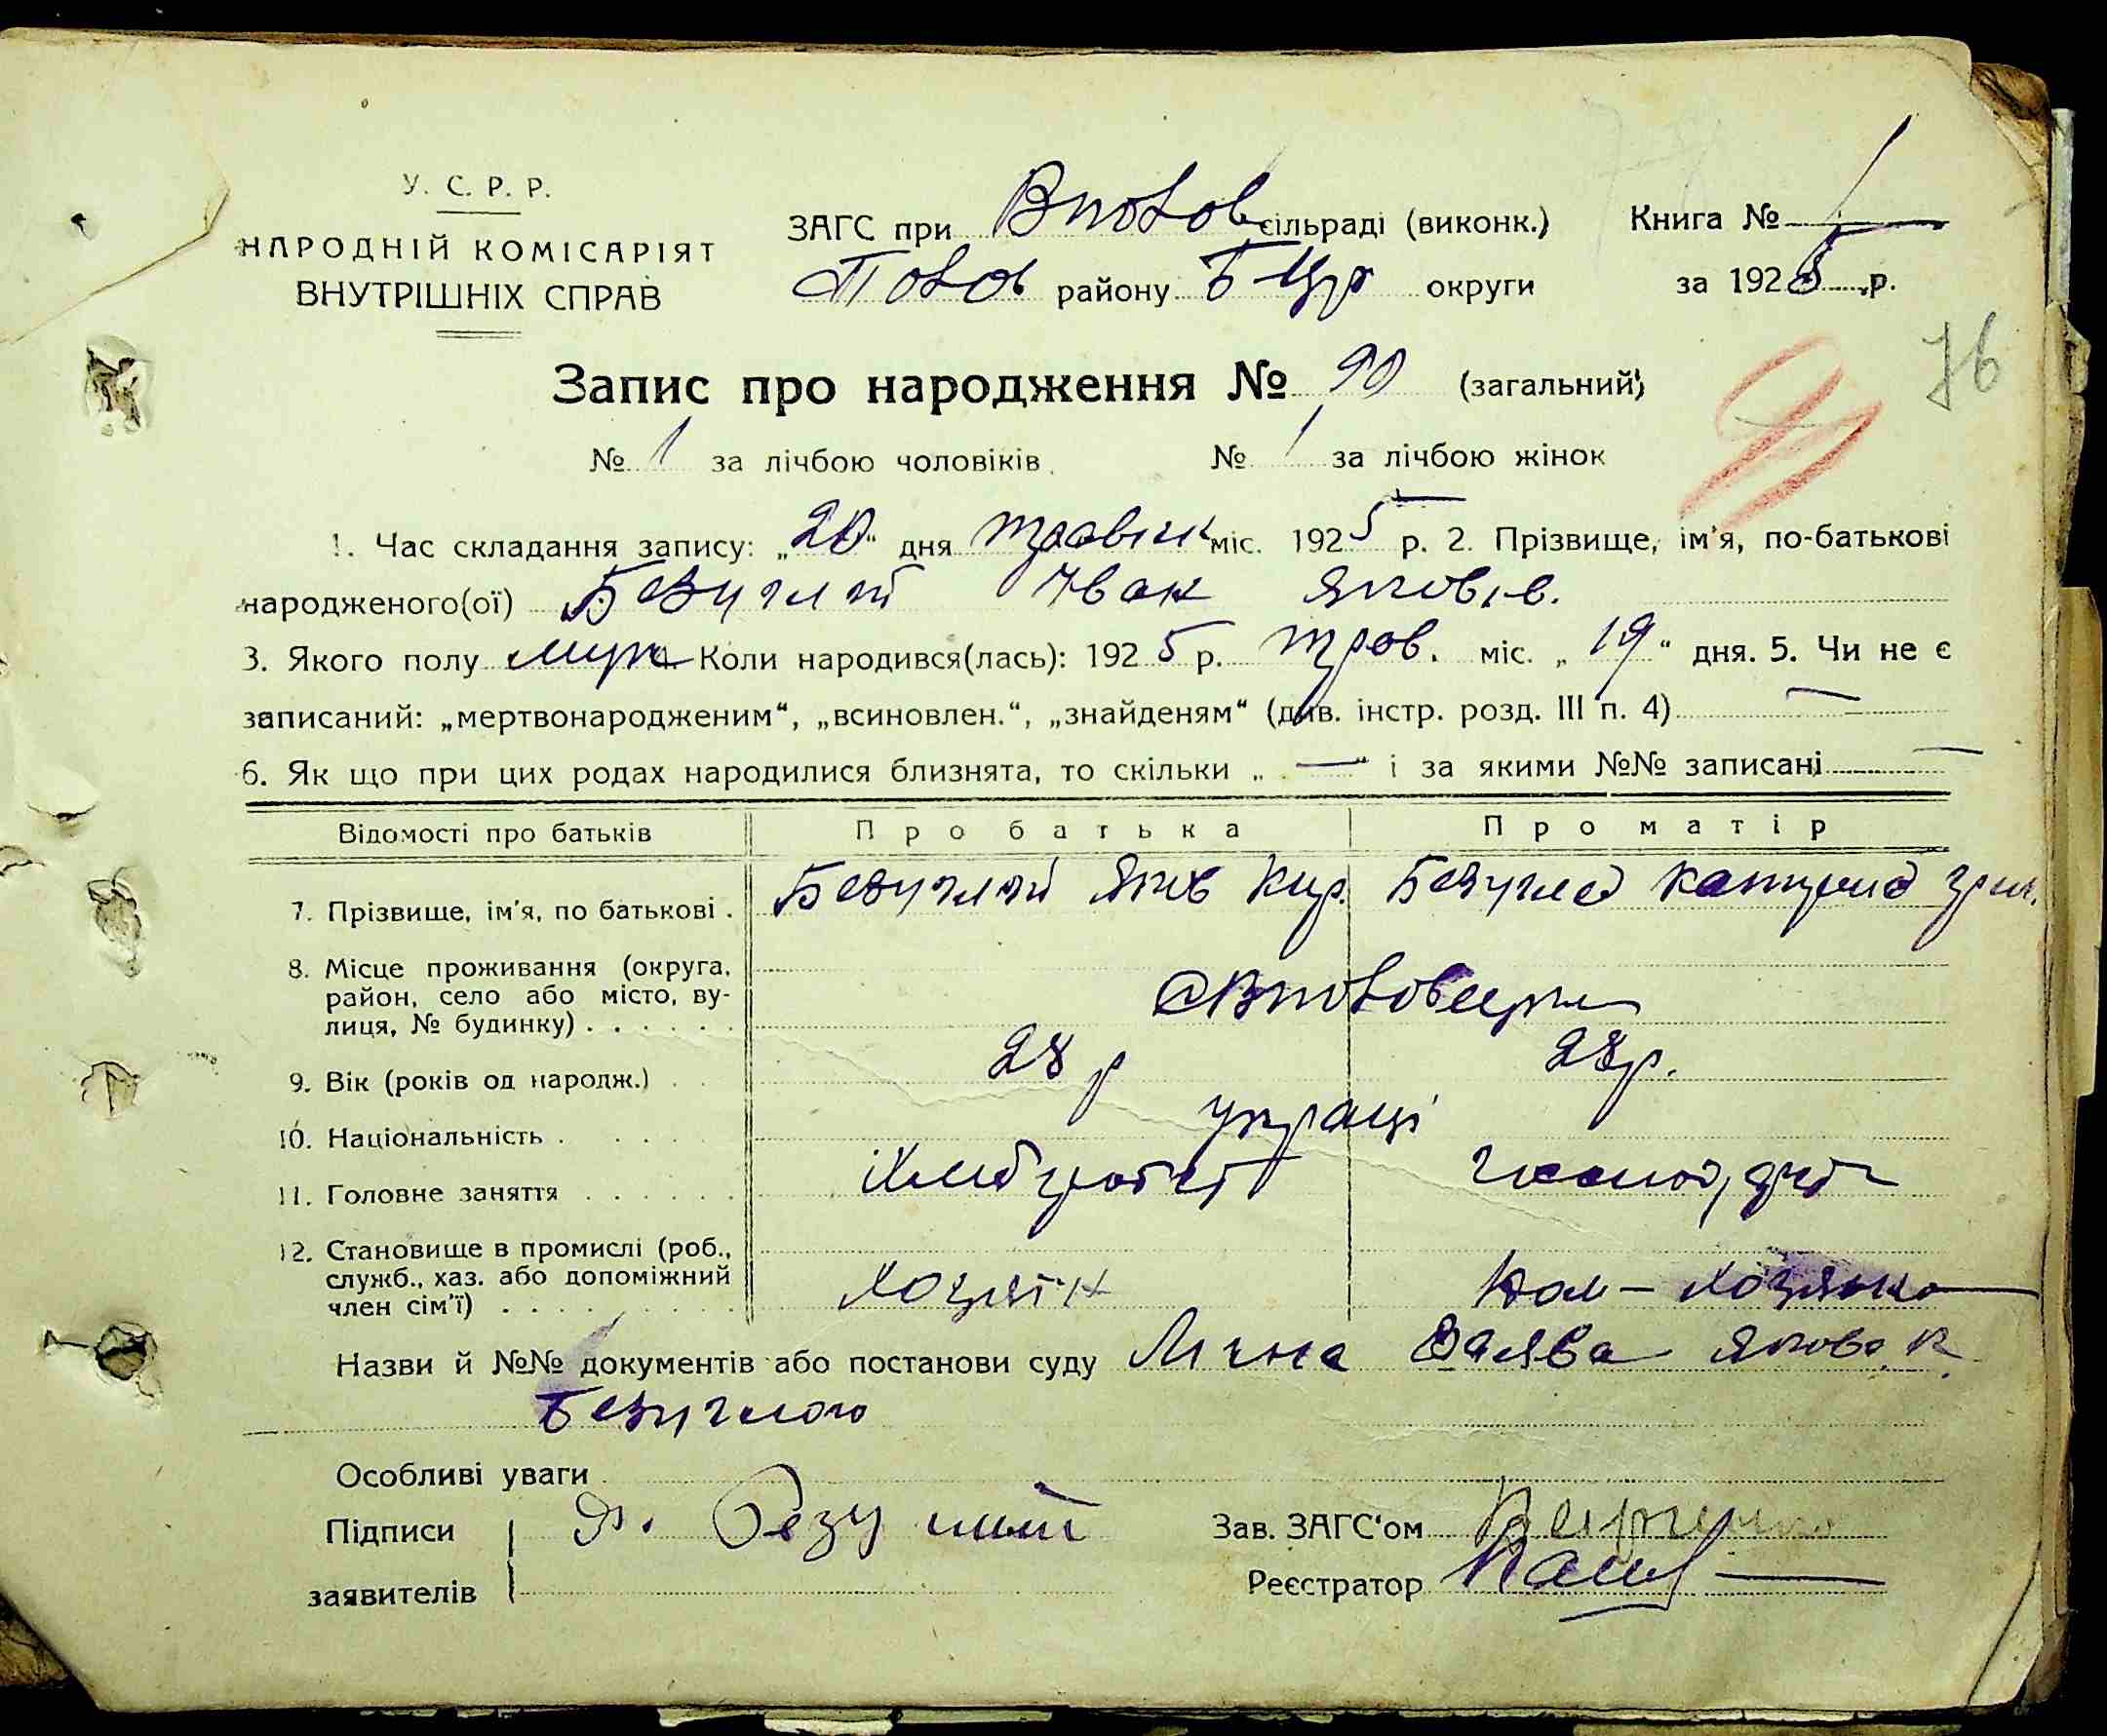 У. С. Р. Р.
НАРОДНІЙ КОМІСАРІЯТ
ВНУТРІШНІХ СПРАВ
ЗАГС при сільраді (виконк.)
району Б Цр округи
Книга № 1
за 1925 р.
76
Запис про народження № 90 (загальний)
№ за лічбою чоловіків. № за лічбою жінок
1. Час складання запису: „20“ дня травня міс. 1925 р. 2. Прізвище, ім'я, по-батькові
народженого(ої) Безуглий Іван Яковів.
3. Якого полу муж 4. Коли народився(лась): 1925 р. трав. міс. „19“ дня. 5. Чи не є
записаний: „мертвонародженим“, „всиновлен.“, „знайденям“ (див. інстр. розд. III п. 4) —
6. Як що при цих родах народилися близнята, то скільки „—“ і за якими №№ записані —
Відомості про батьків Про батька Про матір
7. Прізвище, ім'я, по батькові . Безуглий Яків Кир. Безугла Катерина Григ.
8. Місце проживання (округа,
район, село або місто, ву-
лиця, № будинку) . . . . . .
9. Вік (років од народж.) . . 28 р 28р.
10. Національність . . . . украці
11. Головне заняття . . . . . . Хлібороб
12. Становище в промислі (роб.,
служб., хаз. або допоміжний
член сім'ї) . . . . . . . . . хозяїн — хозяйка
Назви й №№ документів або постанови суду Лична Заява Якова К.
Безуглого
Особливі уваги
Підписи Я. Безуглий Зав. ЗАГС'ом
заявителів Реєстратор